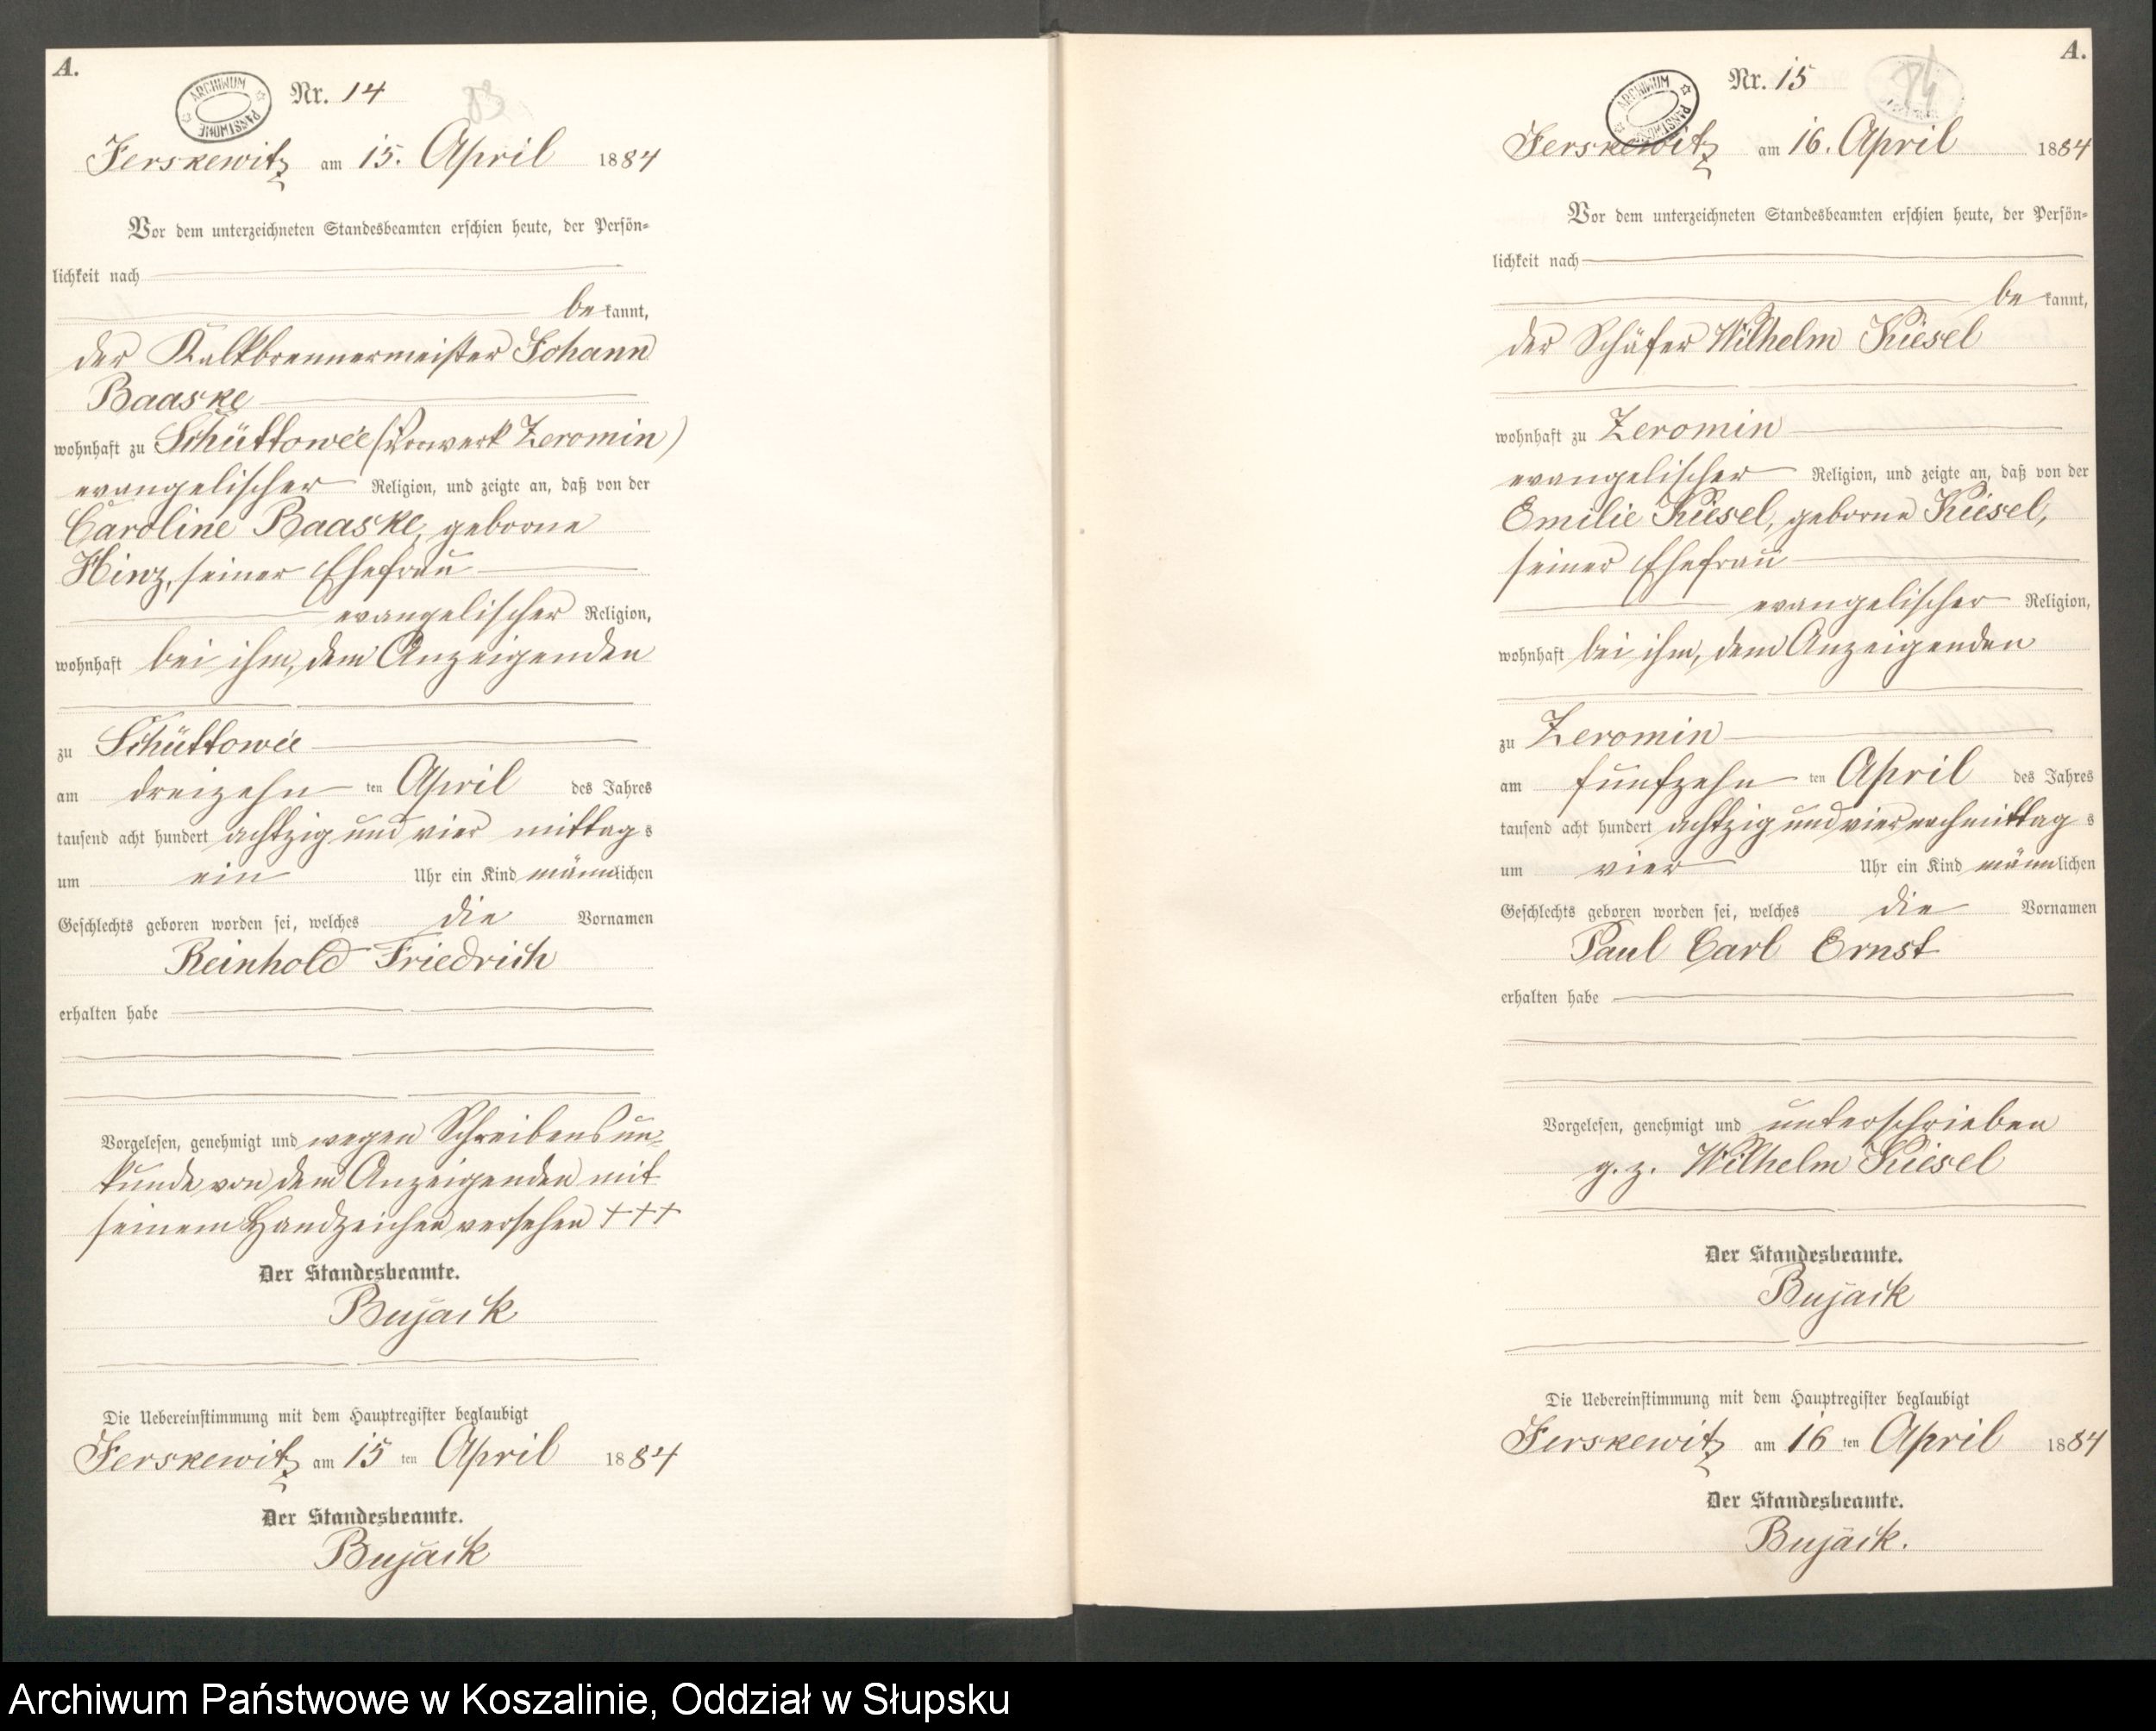 A.
ARCHIWUM PAŃSTWOWE
Nr. 14
83
Jerskewitz am 15. April 1884
Vor dem unterzeichneten Standesbeamten erschien heute, der Persön-
lichkeit nach
be kannt,
der Kalkbrennermeister Johann
Baaske
wohnhaft zu Schüttowée (Vorwerk Zeromin)
evangelischer Religion, und zeigte an, daß von der
Caroline Baaske, geborne
Hinz, seiner Ehefrau
evangelischer Religion,
wohnhaft bei ihm, dem Anzeigenden
zu Schüttowée
am dreizehn ten April des Jahres
tausend acht hundert achtzig und vier mittag s
um ein Uhr ein Kind männlichen
Geschlechts geboren worden sei, welches die Vornamen
Reinhold Friedrich
erhalten habe
Vorgelesen, genehmigt und wegen Schreibensun-
kunde von dem Anzeigenden mit
seinem Handzeichen versehen +++
Der Standesbeamte.
Bujack
Die Uebereinstimmung mit dem Hauptregister beglaubigt
Jerskewitz am 15 ten April 1884
Der Standesbeamte.
Bujack
A.
ARCHIWUM PAŃSTWOWE
Nr. 15
84
Jerskewitz am 16. April 1884
Vor dem unterzeichneten Standesbeamten erschien heute, der Persön-
lichkeit nach
be kannt,
der Schäfer Wilhelm Kiesel
wohnhaft zu Zeromin
evangelischer Religion, und zeigte an, daß von der
Emilie Kiesel, geborne Kiesel,
seiner Ehefrau
evangelischer Religion,
wohnhaft bei ihm, dem Anzeigenden
zu Zeromin
am fünfzehn ten April des Jahres
tausend acht hundert achtzig und vier nachmittag s
um vier Uhr ein Kind männlichen
Geschlechts geboren worden sei, welches die Vornamen
Paul Carl Ernst
erhalten habe
Vorgelesen, genehmigt und unterschrieben
g. z. Wilhelm Kiesel
Der Standesbeamte.
Bujack
Die Uebereinstimmung mit dem Hauptregister beglaubigt
Jerskewitz am 16 ten April 1884
Der Standesbeamte.
Bujack.
Archiwum Państwowe w Koszalinie, Oddział w Słupsku